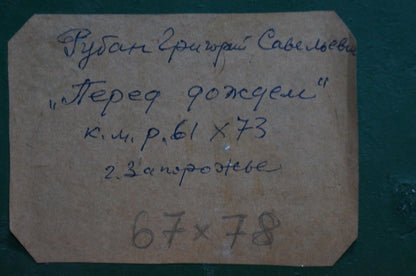 Рубан Григорий Савельевич
„Перед дождем"
к.м.р. 61 х 73
г. Запорожье
67 х 78